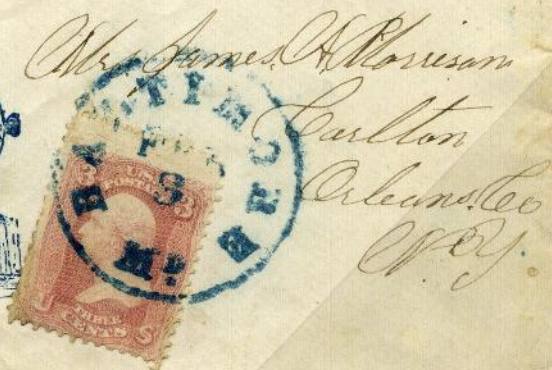 Mrs James H Morrison
Carlton
Orleans. Co
N. Y.
BALTIMORE
FEB
3
Md.
3 3
U.S.
POSTAGE
THREE
CENTS
U S